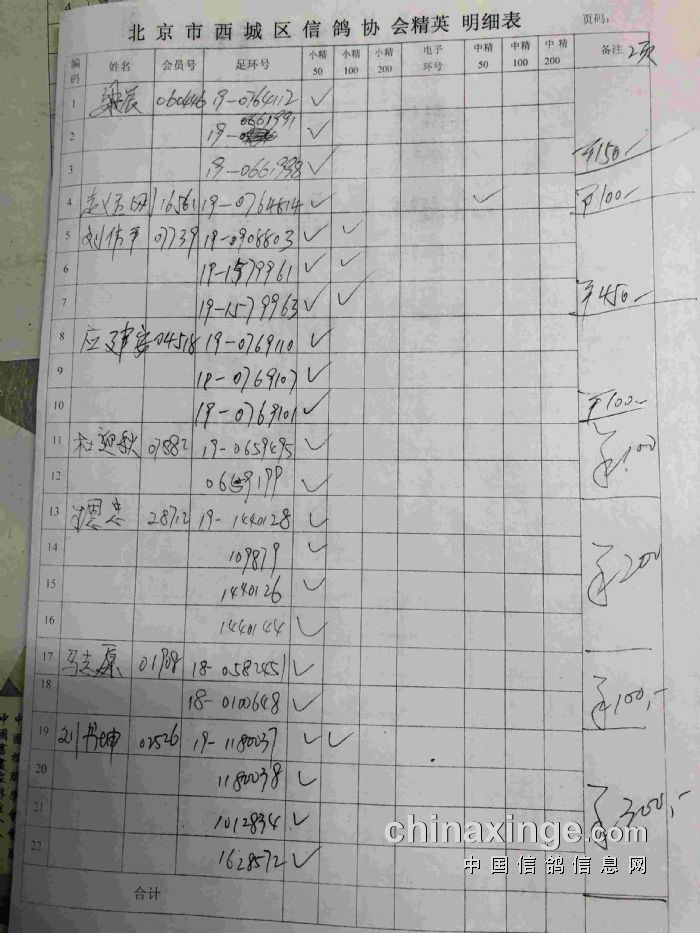 北京市西城区信鸽协会精英 明细表
页码：
编码 姓名 会员号 足环号 小精50 小精100 小精200 电子环号 中精50 中精100 中精200 备注 2页
1 060446 19-0764112 ✓
2 19-0661991 ✓
3 19-0661998 ✓ ¥150-
4 16561 19-0764814 ✓ ✓ ¥100-
5 刘伟平 07739 19-0908803 ✓ ✓
6 19-1579961 ✓ ✓
7 19-1579963 ✓ ✓ ¥450-
8 应建安 04518 19-0769110 ✓
9 19-0769107 ✓
10 19-0769101 ✓ ¥100-
11 杜迎秋 07882 19-0659495 ✓ ¥100
12 ✓
13 28712 19-1440128 ✓
14 109879 ✓ ¥200
15 1440126 ✓
16 1440144 ✓
17 马志原 01908 18-0582451 ✓
18 18-0100648 ✓ ¥100,-
19 02526 19-1180037 ✓ ✓
20 1180038 ✓
21 1012834 ✓ ¥300,-
22 1628572 ✓
合计
chinaxinge.com
中国信鸽信息网